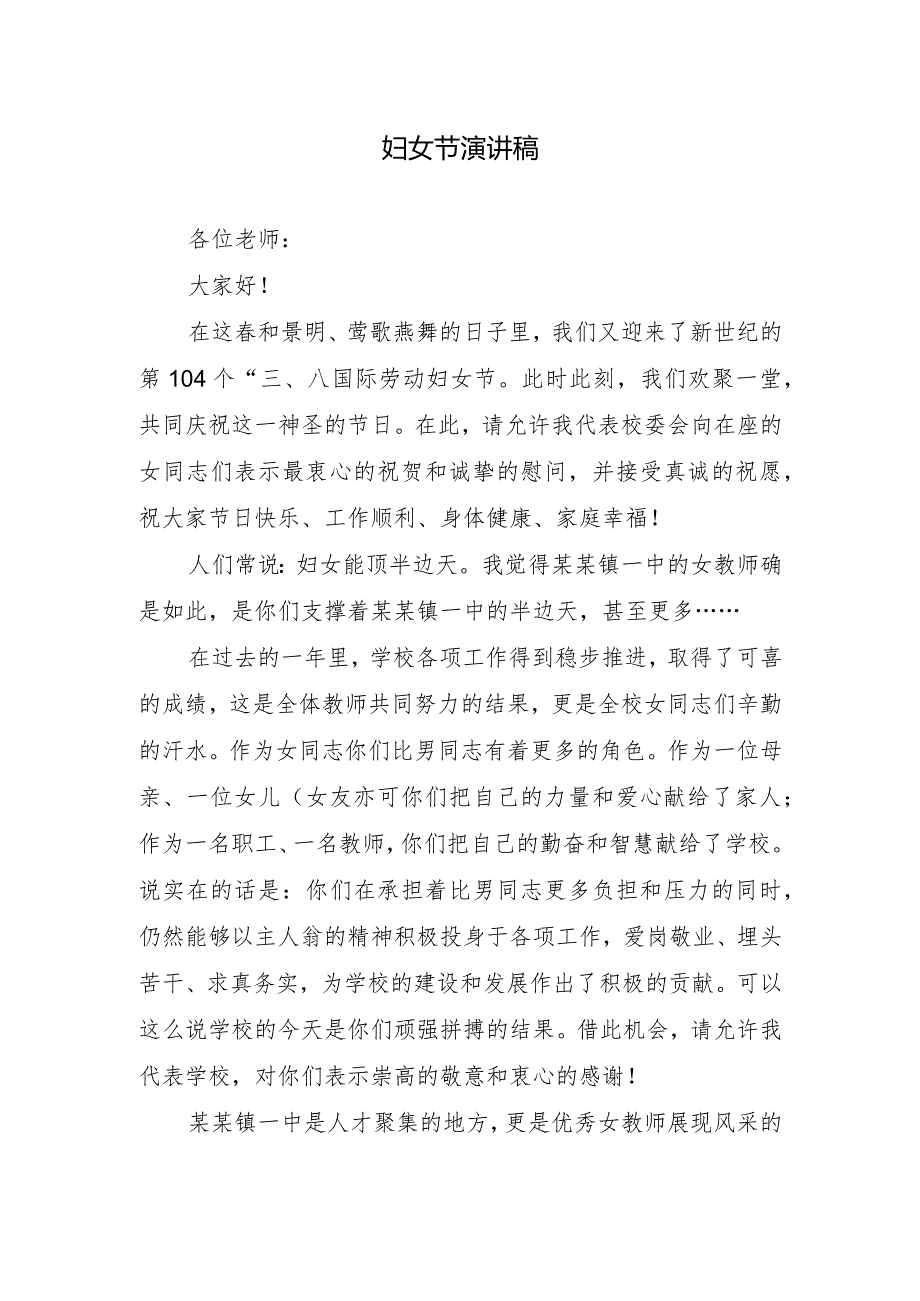 妇女节演讲稿
各位老师：
大家好！
在这春和景明、莺歌燕舞的日子里，我们又迎来了新世纪的
第104个“三、八国际劳动妇女节。此时此刻，我们欢聚一堂，
共同庆祝这一神圣的节日。在此，请允许我代表校委会向在座的
女同志们表示最衷心的祝贺和诚挚的慰问，并接受真诚的祝愿，
祝大家节日快乐、工作顺利、身体健康、家庭幸福！
人们常说：妇女能顶半边天。我觉得某某镇一中的女教师确
是如此，是你们支撑着某某镇一中的半边天，甚至更多……
在过去的一年里，学校各项工作得到稳步推进，取得了可喜
的成绩，这是全体教师共同努力的结果，更是全校女同志们辛勤
的汗水。作为女同志你们比男同志有着更多的角色。作为一位母
亲、一位女儿（女友亦可你们把自己的力量和爱心献给了家人；
作为一名职工、一名教师，你们把自己的勤奋和智慧献给了学校。
说实在的话是：你们在承担着比男同志更多负担和压力的同时，
仍然能够以主人翁的精神积极投身于各项工作，爱岗敬业、埋头
苦干、求真务实，为学校的建设和发展作出了积极的贡献。可以
这么说学校的今天是你们顽强拼搏的结果。借此机会，请允许我
代表学校，对你们表示崇高的敬意和衷心的感谢！
某某镇一中是人才聚集的地方，更是优秀女教师展现风采的